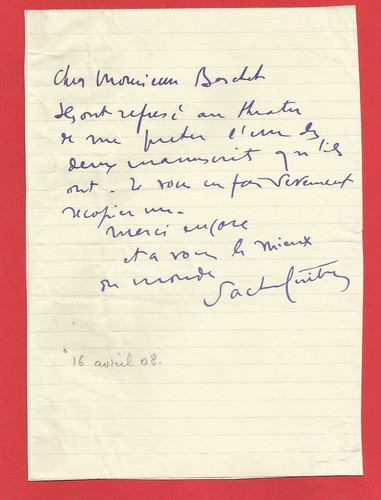 Cher Monsieur Berchet
Ils ont refusé au theatre
de me preter l'un des
deux manuscrit qu'ils
ont. Je vous en fais
recopier un.
merci encore
et a vous le mieux
du monde
Sacha Guitry
16 avril 08.